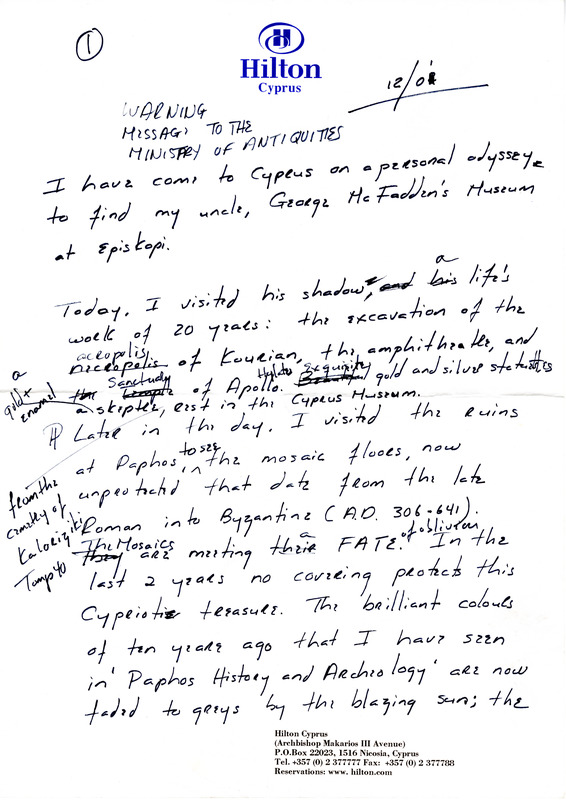 1
Hilton
Cyprus
12/01
WARNING
MESSAGE TO THE
MINISTRY OF ANTIQUITIES
I have come to Cyprus on a personal odyssey
to find my uncle, George McFadden's Museum
at Episkopi.
Today, I visited his shadow, and his a life's
work of 20 years: the excavation of the
acropolis
necropolis of Kourian, the amphitheatre, and
Sanctuary of Apollo. Hylates Exquisite gold and silver statuettes
a gold + enamel
a skepter, rest in the Cyprus Museum.
from the
cemetery of
Kaloriziki
Tomb 40
Later in the day, I visited the ruins
at Paphos to see the mosaic floors, now
unprotected that date from the late
Roman into Byzantine (A.D. 306-641).
The Mosaics
They are meeting their a FATE of oblivion. In the
last 2 years no covering protects this
Cypriot treasure. The brilliant colours
of ten years ago that I have seen
in 'Paphos History and Archeology' are now
faded to greys by the blazing sun; the
Hilton Cyprus
(Archbishop Makarios III Avenue)
P.O.Box 22023, 1516 Nicosia, Cyprus
Tel. +357 (0) 2 377777 Fax: +357 (0) 2 377788
Reservations: www. hilton.com